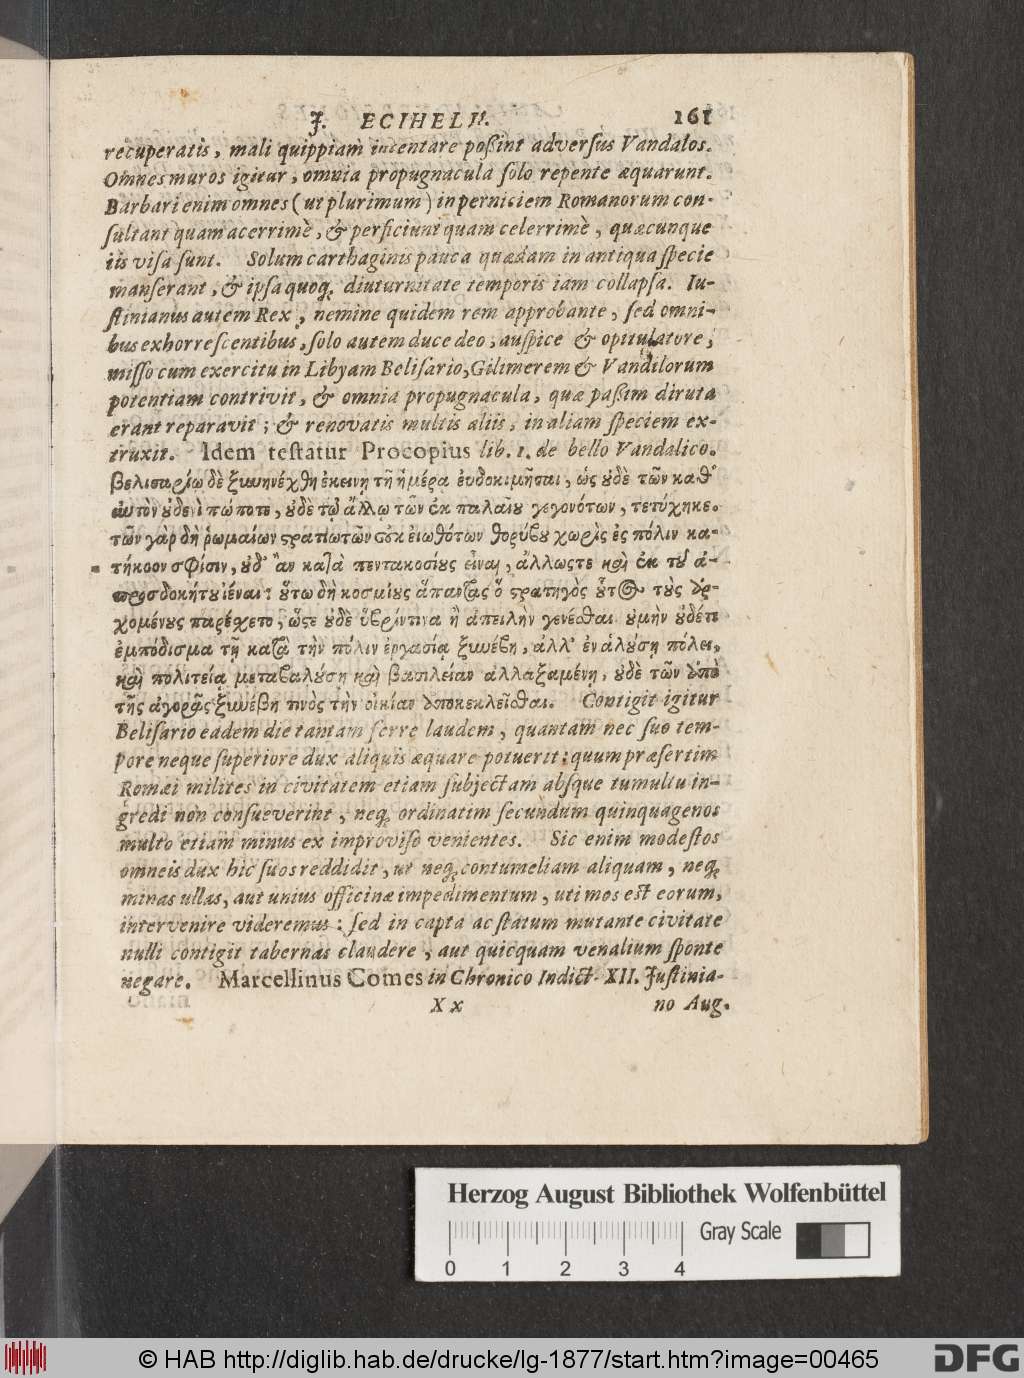 J. ECIHELII. 161
recuperatis, mali quippiam intentare poßint adverſus Vandalos.
Omnes muros igitur, omnia propugnacula ſolo repente æquarunt.
Barbari enim omnes (ut plurimum) in perniciem Romanorum con-
ſultant quam acerrimè, & perficiunt quam celerrimè, quæcunque
iis viſa ſunt. Solum carthaginis pauca quædam in antiqua ſpecie
manſerant, & ipſa quoq; diuturnitate temporis iam collapſa. Iu-
ſtinianus autem Rex, nemine quidem rem approbante, ſed omni-
bus exhorreſcentibus, ſolo autem duce deo, auſpice & opitulatore,
miſſo cum exercitu in Libyam Beliſario, Gilimerem & Vandilorum
potentiam contrivit, & omnia propugnacula, quæ paßim diruta
erant reparavit; & renovatis multis aliis, in aliam ſpeciem ex-
truxit. Idem teſtatur Procopius lib. 1. de bello Vandalico.
βελισαρίῳ δὲ ξυνηνέχθη ἐκεινη τῇ ἡμέρα ἐυδοκιμῆσαι, ὡς ȣδὲ τῶν καθ'
ἀυτὸν ȣδενὶ πώποτε, ȣδὲ τῷ ἄλλῳ τῶν ἐκ παλαιȣ γεγονότων, τετύχηκε.
τῶν γὰρ δὴ ῥωμαίων στρατιωτῶν οὐκ ἐιωθότων θορύβȣ χωρὶς ἐς πόλιν κα-
τήκοον σφίσιν, ȣδ' ἂν κατὰ πεντακοσίȣς εἶναι, ἄλλως τε καὶ ἐκ τȣ ἀ-
προσδοκήτȣ ἰέναι: ȣτω δὴ κοσμίȣς ἅπαντας ὅ στρατηγὸς ȣτος τȣς ἀρ-
χομένȣς παρέχετο, ὥςτε ȣδὲ ὕβριν τινα ἢ ἀπειλὴν γενέσθαι. ȣμὴν ȣδέ τι
ἐμπόδισμα τῇ κατὰ τὴν πόλιν ἐργασίᾳ ξυνέβη, ἀλλ' ἐν ἁλȣση πόλει,
καὶ πολιτείᾳ μεταβαλȣση καὶ βασιλείαν ἀλλαξαμένη, ȣδὲ τῶν ὑπὸ
τῆς ἀγορᾶς ξυνέβη τινὸς τὴν οἰκίαν ὑποκεκλεῖσθαι. Contigit igitur
Beliſario eadem die tantam ferre laudem, quantam nec ſuo tem-
pore neque ſuperiore dux aliquis æquare potuerit: quum præſertim
Romæi milites in civitatem etiam ſubjectam abſque tumultu in-
gredi non conſueverint, neq; ordinatim ſecundum quinquagenos
multo etiam minus ex improviſo venientes. Sic enim modeſtos
omneis dux hic ſuos reddidit, ut neq; contumeliam aliquam, neq;
minas ullas, aut unius officinæ impedimentum, uti mos eſt eorum,
intervenire videremus: ſed in capta ac ſtatum mutante civitate
nulli contigit tabernas claudere, aut quicquam venalium ſponte
negare. Marcellinus Comes in Chronico Indict. XII. Juſtinia-
X x no Aug.
Herzog August Bibliothek Wolfenbüttel
Gray Scale
0 1 2 3 4
© HAB http://diglib.hab.de/drucke/lg-1877/start.htm?image=00465
DFG